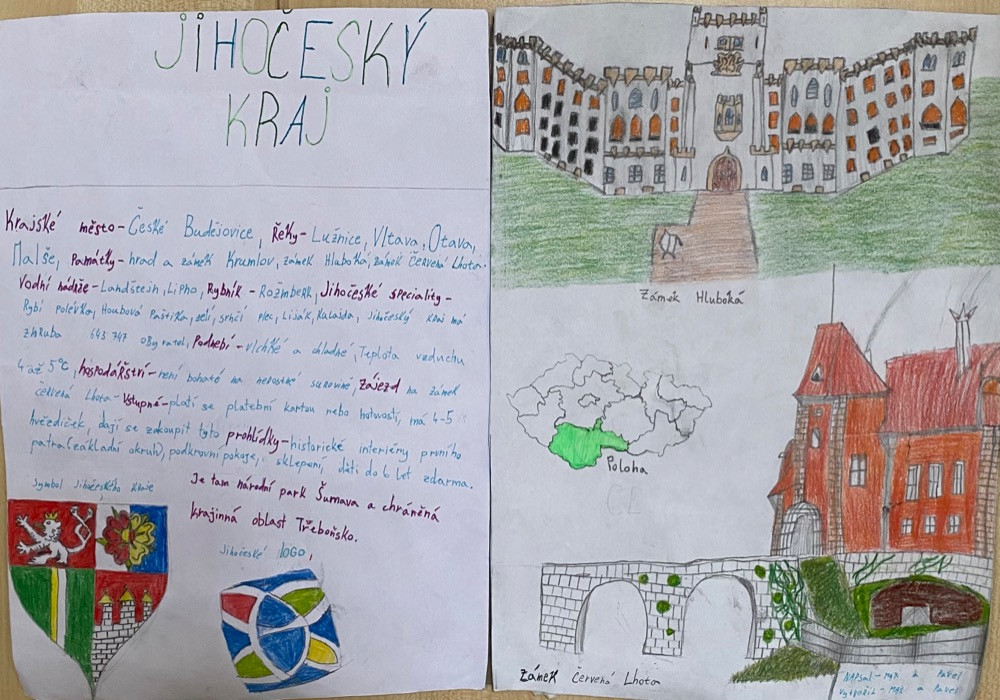 JIHOČESKÝ
KRAJ
Krajské město-České Budějovice, Řeky-Lužnice, Vltava, Otava,
Malše, Památky-hrad a zámek Krumlov, zámek Hluboká, zámek Červená Lhota.
Vodní nádrže-Landštejn, Lipno, Rybník-Rožmberk, Jihočeské speciality-
Rybí polévka, Houbová Paštika, zelí, srnčí plec, Lišák, Kulajda, Jihočeský kraj má
zhruba 643 747 obyvatel, Podnebí-vlhké a chladné, Teplota vzduchu
4 až 5°C, hospodářství-není bohaté na nerostné suroviny, zájezd na zámek
červená Lhota-Vstupné-platí se platební kartou nebo hotvostí, má 4-5
hvězdiček, dají se zakoupit tyto prohlídky-historické interiéry prvního
patra (základní okruh), podkrovní pokoje, sklepení, děti do 6 let zdarma.
Je tam národní park Šumava a chráněná
krajinná oblast Třeboňsko.
Symbol Jihočeského kraje
Jihočeské LOGO,
Zámek Hluboká
Poloha
Zámek Červená Lhota
Napsal-Max a Pavel
Vytvořil-Max a Pavel